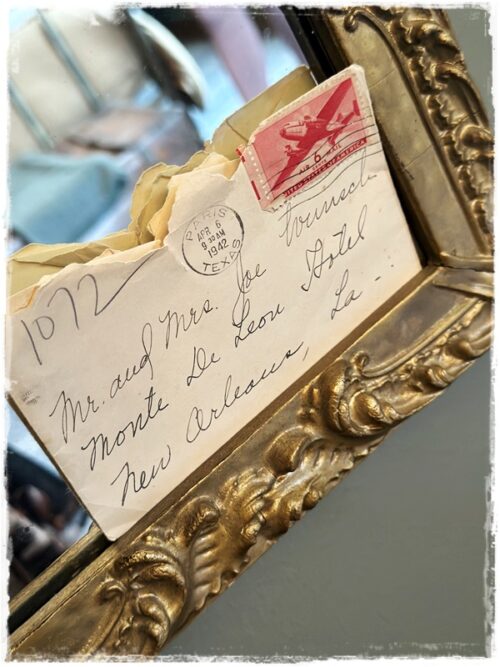 AIR MAIL
6¢
UNITED STATES OF AMERICA
PARIS
APR 6
9 30 AM
1942
TEXAS
1072
Mr. and Mrs. Joe Wunsch
Monte De Leon Hotel
New Orleans, La -